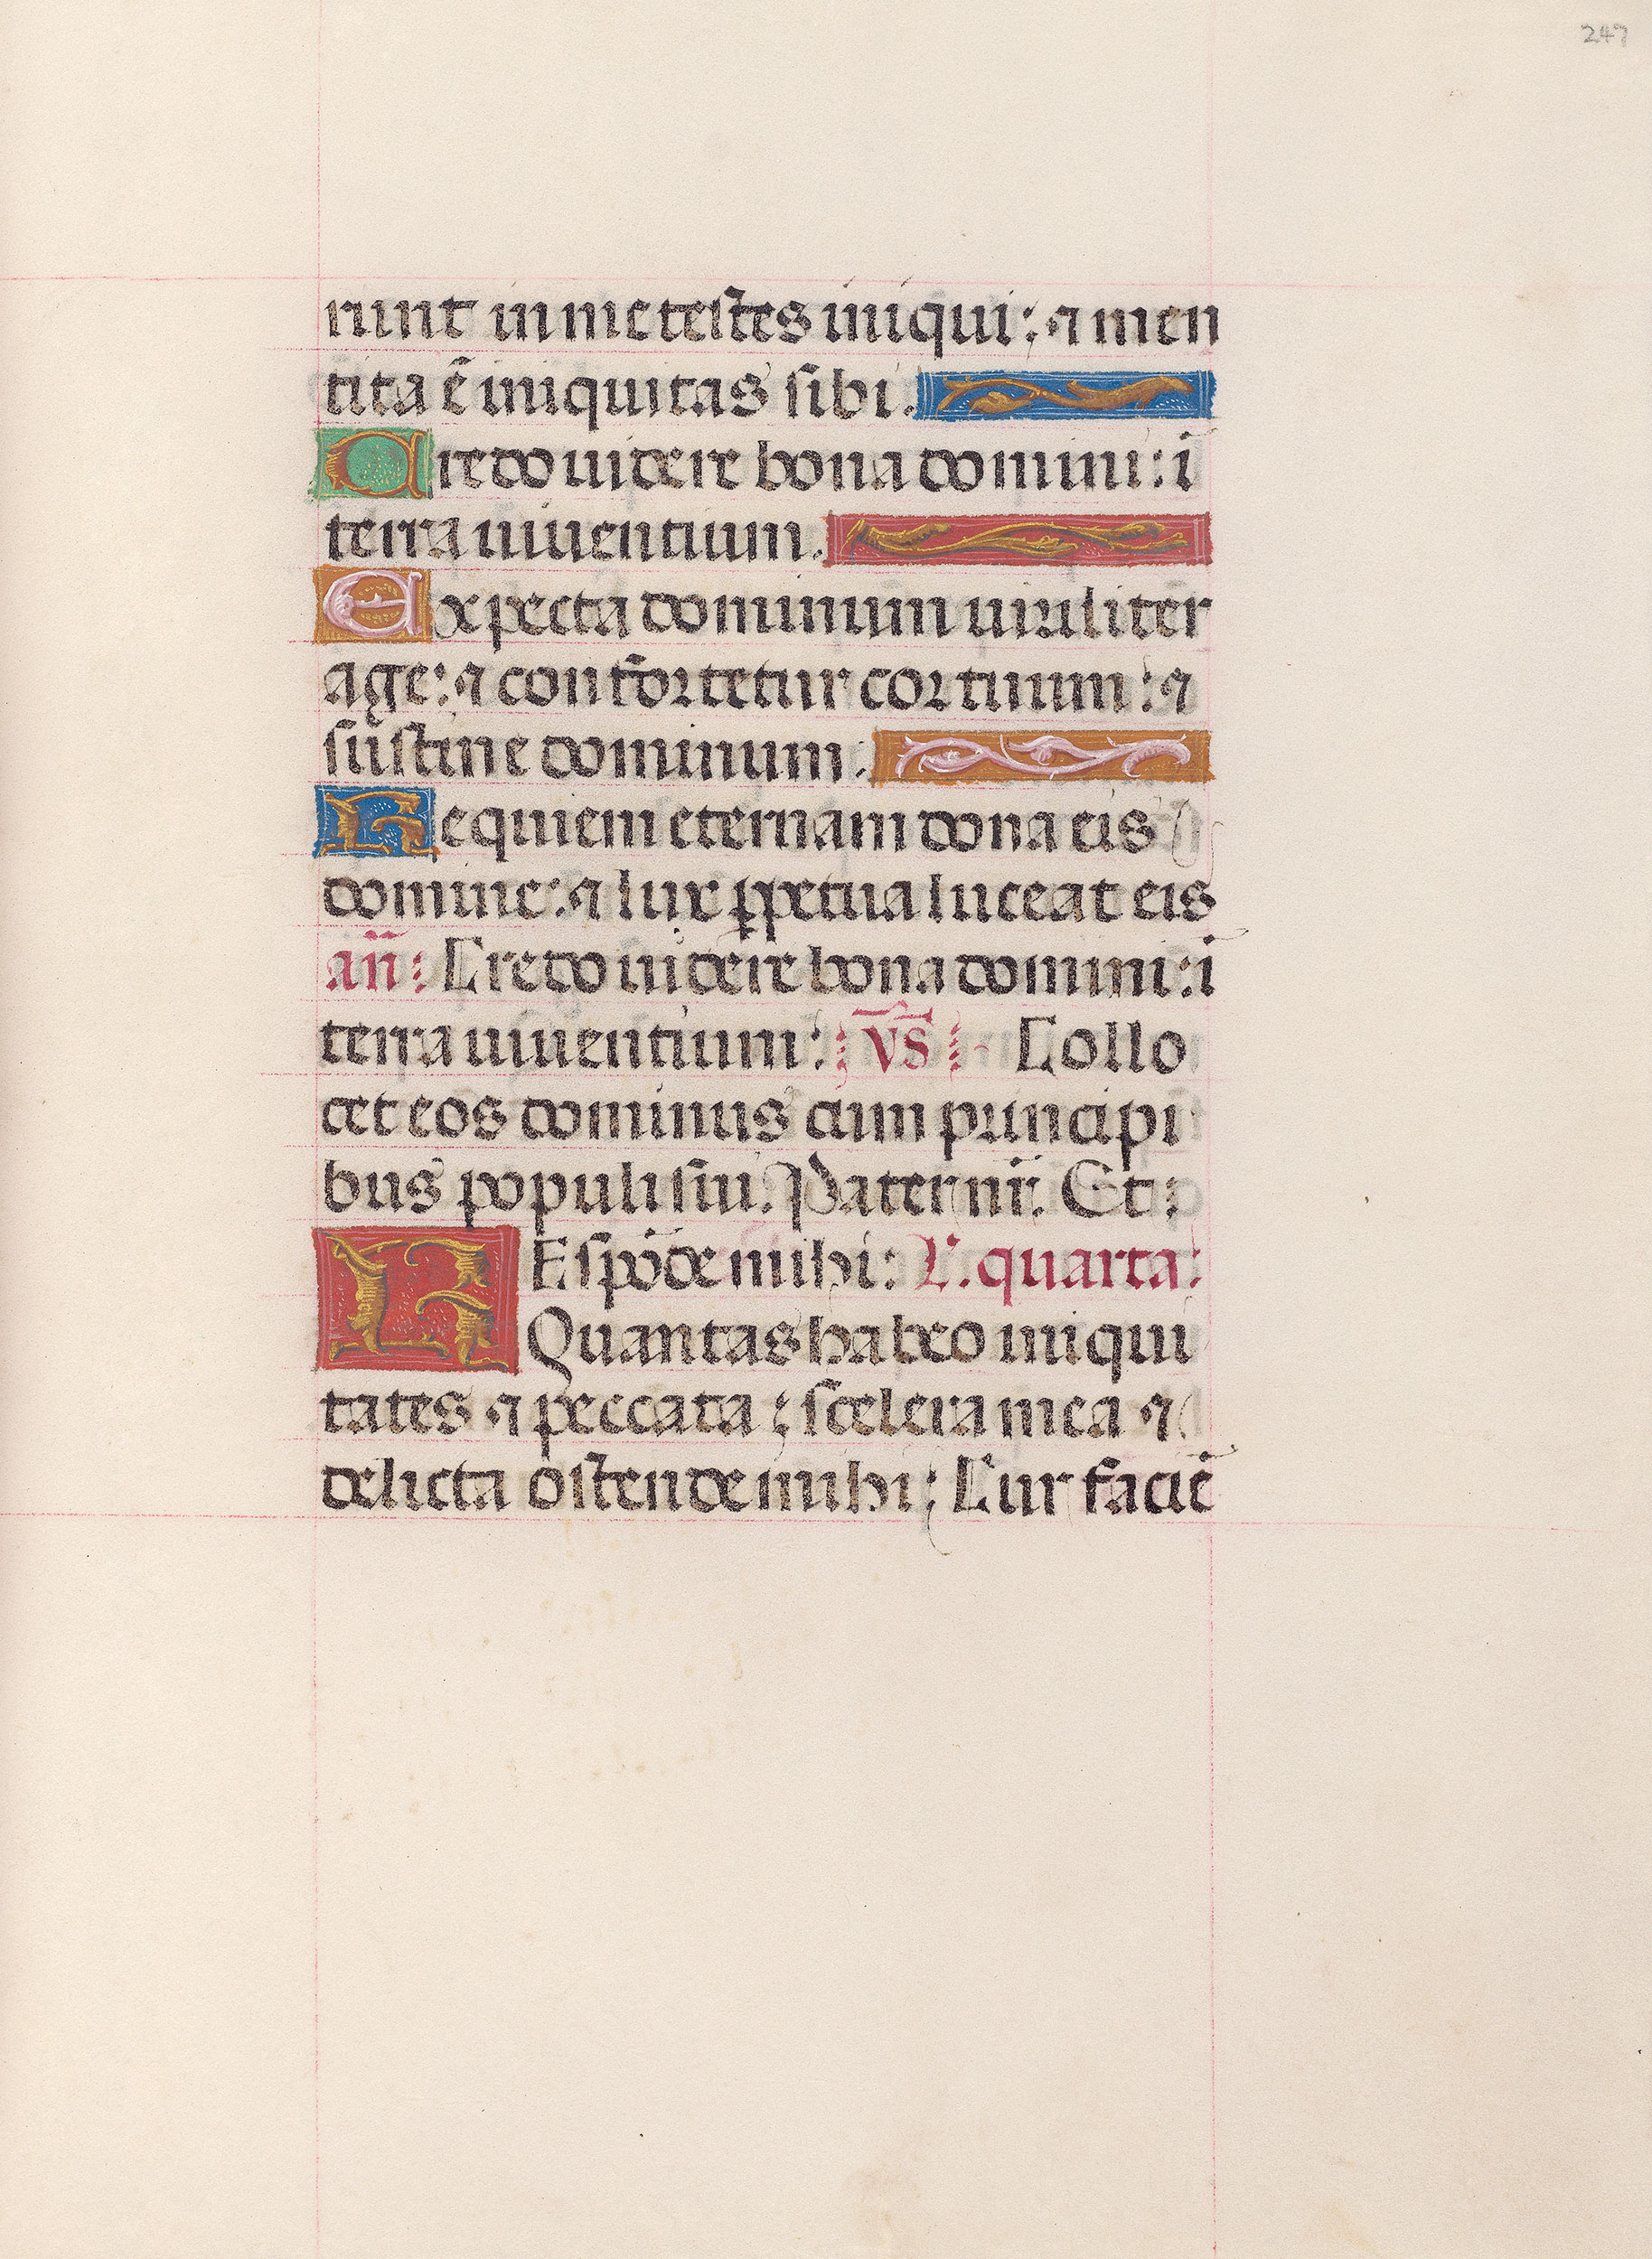 247
runt in me testes iniqui: ⁊ men
tita ē iniquitas sibi.
Credo uidere bona domini: ī
terra uiuentium.
Expecta dominum uiriliter
age: ⁊ confortetur cor tuum: ⁊
sustine dominum:
Requiem eternam dona eis
domine: ⁊ lux ꝑpetua luceat eis
añ: Credo uidere bona domini: ī
terra uiuentium: VS̄ Collo
cet eos dominus cum principi
bus populi sui. Pater nr̄. Et:
REspōde mihi: L. quarta:
Quantas habeo iniqui
tates ⁊ peccata: scelera mea ⁊
delicta ostende mihi: Cur faciē